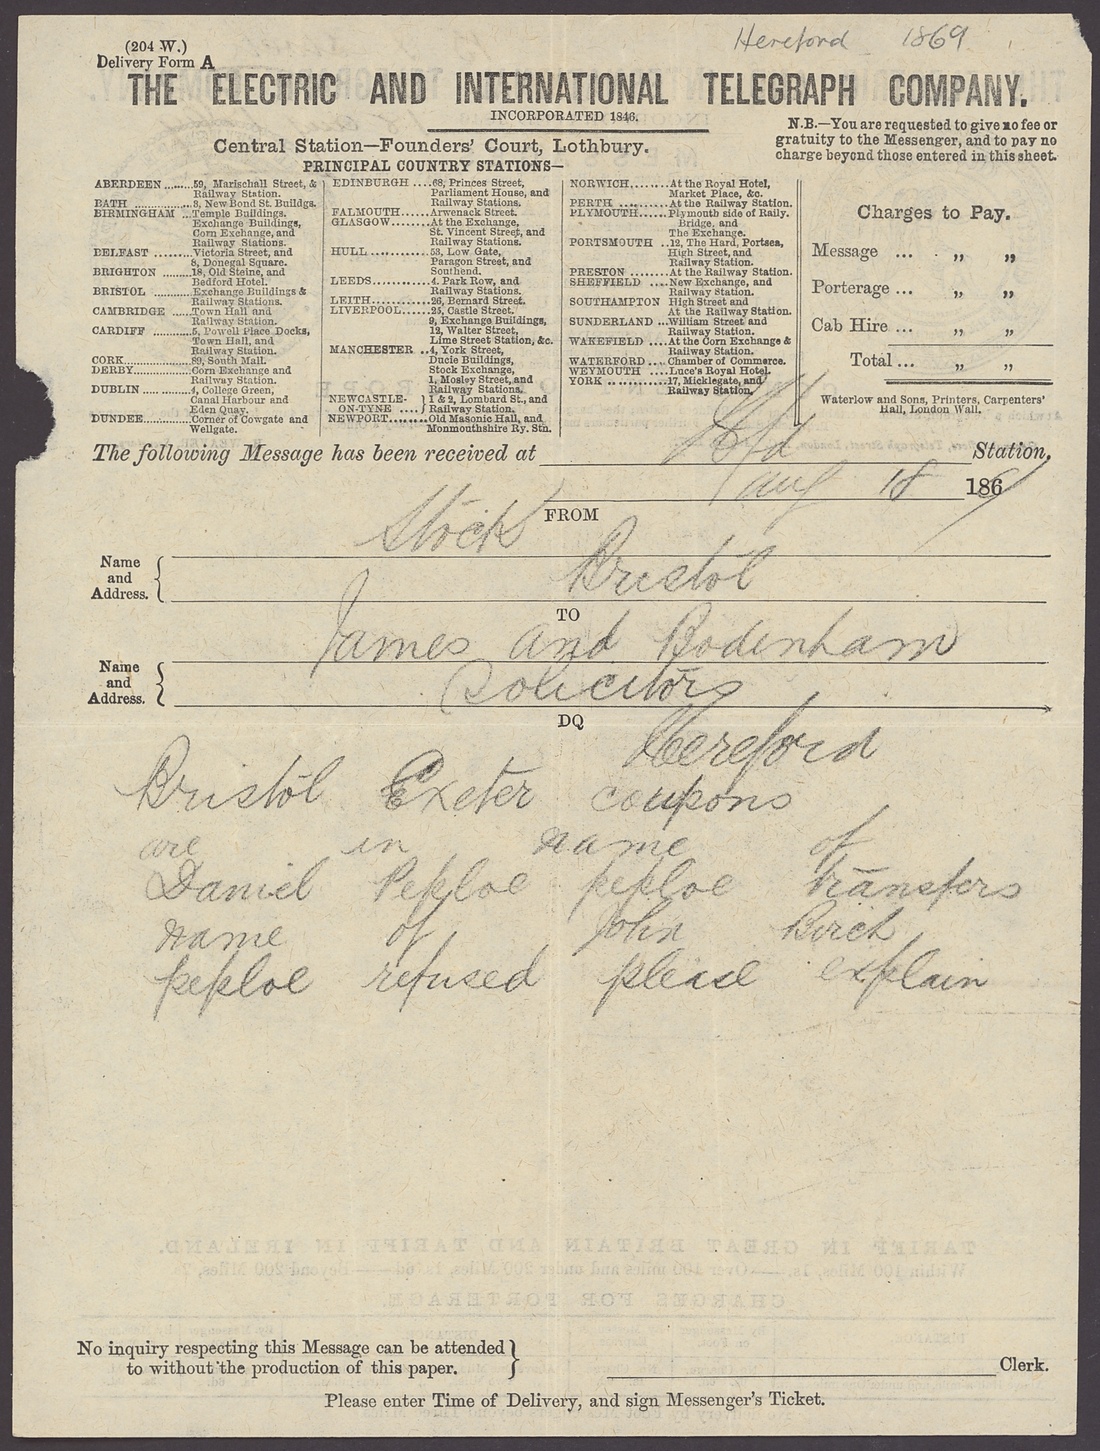 Hereford 1869
(204 W.)
Delivery Form A
THE ELECTRIC AND INTERNATIONAL TELEGRAPH COMPANY.
INCORPORATED 1846.
Central Station—Founders' Court, Lothbury.
PRINCIPAL COUNTRY STATIONS—
N.B.—You are requested to give no fee or
gratuity to the Messenger, and to pay no
charge beyond those entered in this sheet.
ABERDEEN ......59, Marischall Street, &
Railway Station.
BATH ..............8, New Bond St. Buildgs.
BIRMINGHAM ...Temple Buildings.
Exchange Buildings,
Corn Exchange, and
Railway Stations.
BELFAST .........Victoria Street, and
8, Donegal Square.
BRIGHTON ......18, Old Steine, and
Bedford Hotel.
BRISTOL .........Exchange Buildings &
Railway Stations.
CAMBRIDGE ...Town Hall and
Railway Station.
CARDIFF .........5, Powell Place, Docks,
Town Hall, and
Railway Station.
CORK...............89, South Mall.
DERBY............Corn Exchange and
Railway Station.
DUBLIN .........4, College Green,
Canal Harbour and
Eden Quay.
DUNDEE.........Corner of Cowgate and
Wellgate.
EDINBURGH ....68, Princes Street,
Parliament House, and
Railway Stations.
FALMOUTH......Arwenack Street.
GLASGOW.......At the Exchange,
St. Vincent Street, and
Railway Stations.
HULL ............53, Low Gate,
Paragon Street, and
Southend.
LEEDS............4, Park Row, and
Railway Stations.
LEITH............26, Bernard Street.
LIVERPOOL......25, Castle Street.
9, Exchange Buildings,
12, Walter Street,
Lime Street Station, &c.
MANCHESTER ..4, York Street,
Ducie Buildings,
Stock Exchange,
1, Mosley Street, and
Railway Stations.
NEWCASTLE-ON-TYNE ....1 & 2, Lombard St., and
Railway Station.
NEWPORT........Old Masonic Hall, and
Monmouthshire Ry. Stn.
NORWICH.......At the Royal Hotel,
Market Place, &c.
PERTH ............At the Railway Station.
PLYMOUTH.......Plymouth side of Raily.
Bridge, and
The Exchange.
PORTSMOUTH ..12, The Hard, Portsea,
High Street, and
Railway Station.
PRESTON .......At the Railway Station.
SHEFFIELD ....New Exchange, and
Railway Station.
SOUTHAMPTON High Street and
At the Railway Station.
SUNDERLAND ..William Street and
Railway Station.
WAKEFIELD ....At the Corn Exchange &
Railway Station.
WATERFORD ....Chamber of Commerce.
WEYMOUTH ....Luce's Royal Hotel.
YORK ............17, Micklegate, and
Railway Station.
Charges to Pay.
Message ... „ „
Porterage ... „ „
Cab Hire ... „ „
Total ... „ „
Waterlow and Sons, Printers, Carpenters'
Hall, London Wall.
The following Message has been received at Hfd Station,
Aug 18 186
FROM
Stock
Name and Address.
Bristol
TO
James and Bodenham
Name and Address.
Solicitors
DQ
Hereford
Bristol Exeter coupons
are in name of
Daniel Peploe peploe transfers
name of John Birch
peploe refused please explain
TARIFF IN GREAT BRITAIN AND TARIFF IN IRELAND.
CHARGES FOR PORTERAGE.
No inquiry respecting this Message can be attended
to without the production of this paper.
Clerk.
Please enter Time of Delivery, and sign Messenger's Ticket.